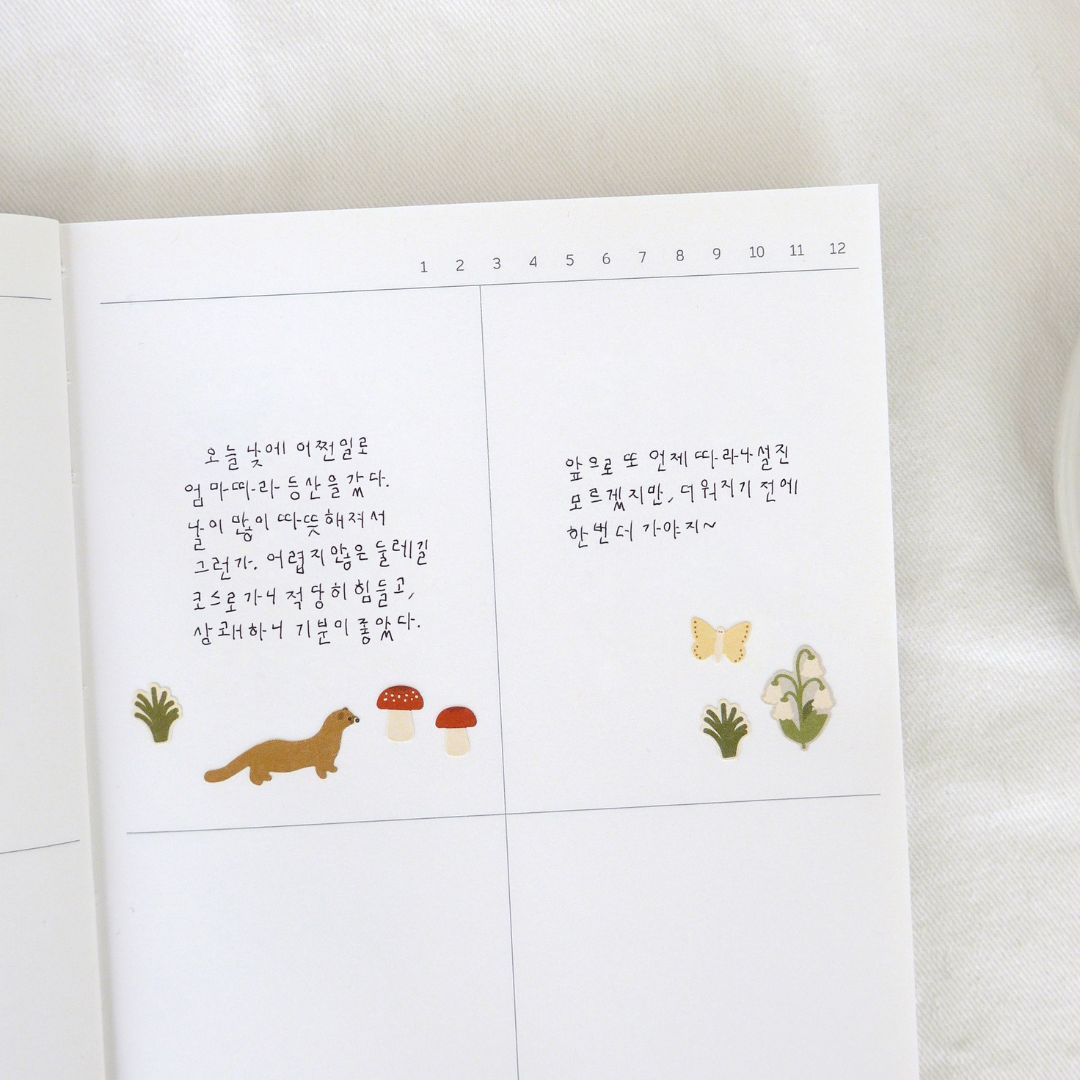 1 2 3 4 5 6 7 8 9 10 11 12
오늘 낮에 어쩐일로
엄마따라 등산을 갔다.
날이 많이 따뜻해져서
그런가. 어렵지않은 둘레길
코스로가니 적당히힘들고,
상쾌하니 기분이좋았다.
앞으로 또 언제 따라나설진
모르겠지만, 더워지기 전에
한번더 가야지~